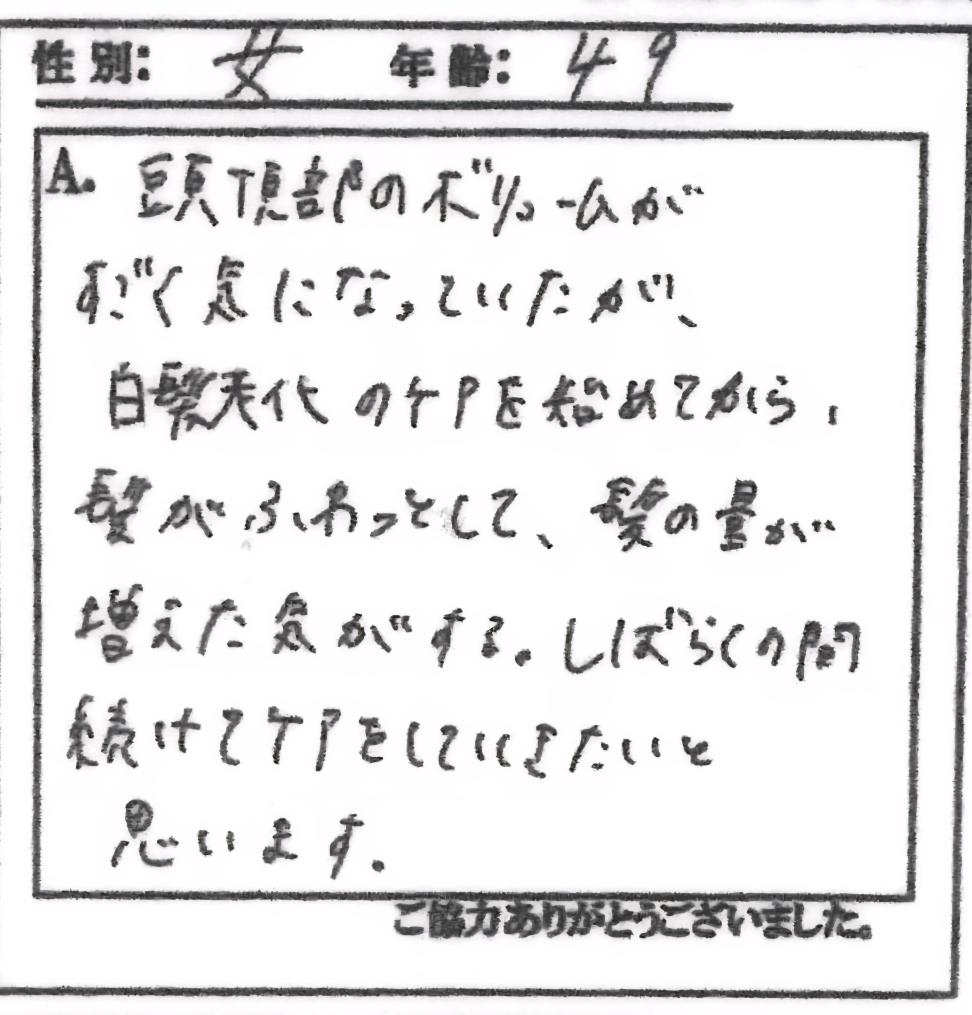 性別: 女 年齢: 49
A. 頭頂部のボリュームが
すごく気になっていたが、
白髪染代のケアを始めてから、
髪がふわっとして、髪の量が
増えた気がする。しばらくの間
続けてケアをしていきたいと
思います。
ご協力ありがとうございました。